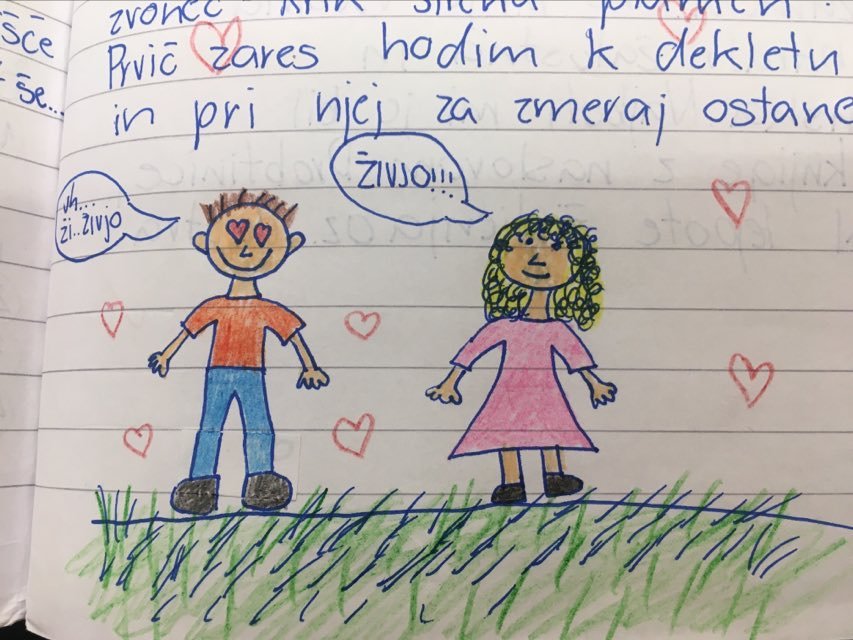 šče
še...
zvonec krik
Prvič zares hodim k dekletu
in pri njej za zmeraj ostane
uh...
ži..živjo
ŽIVJO!!!